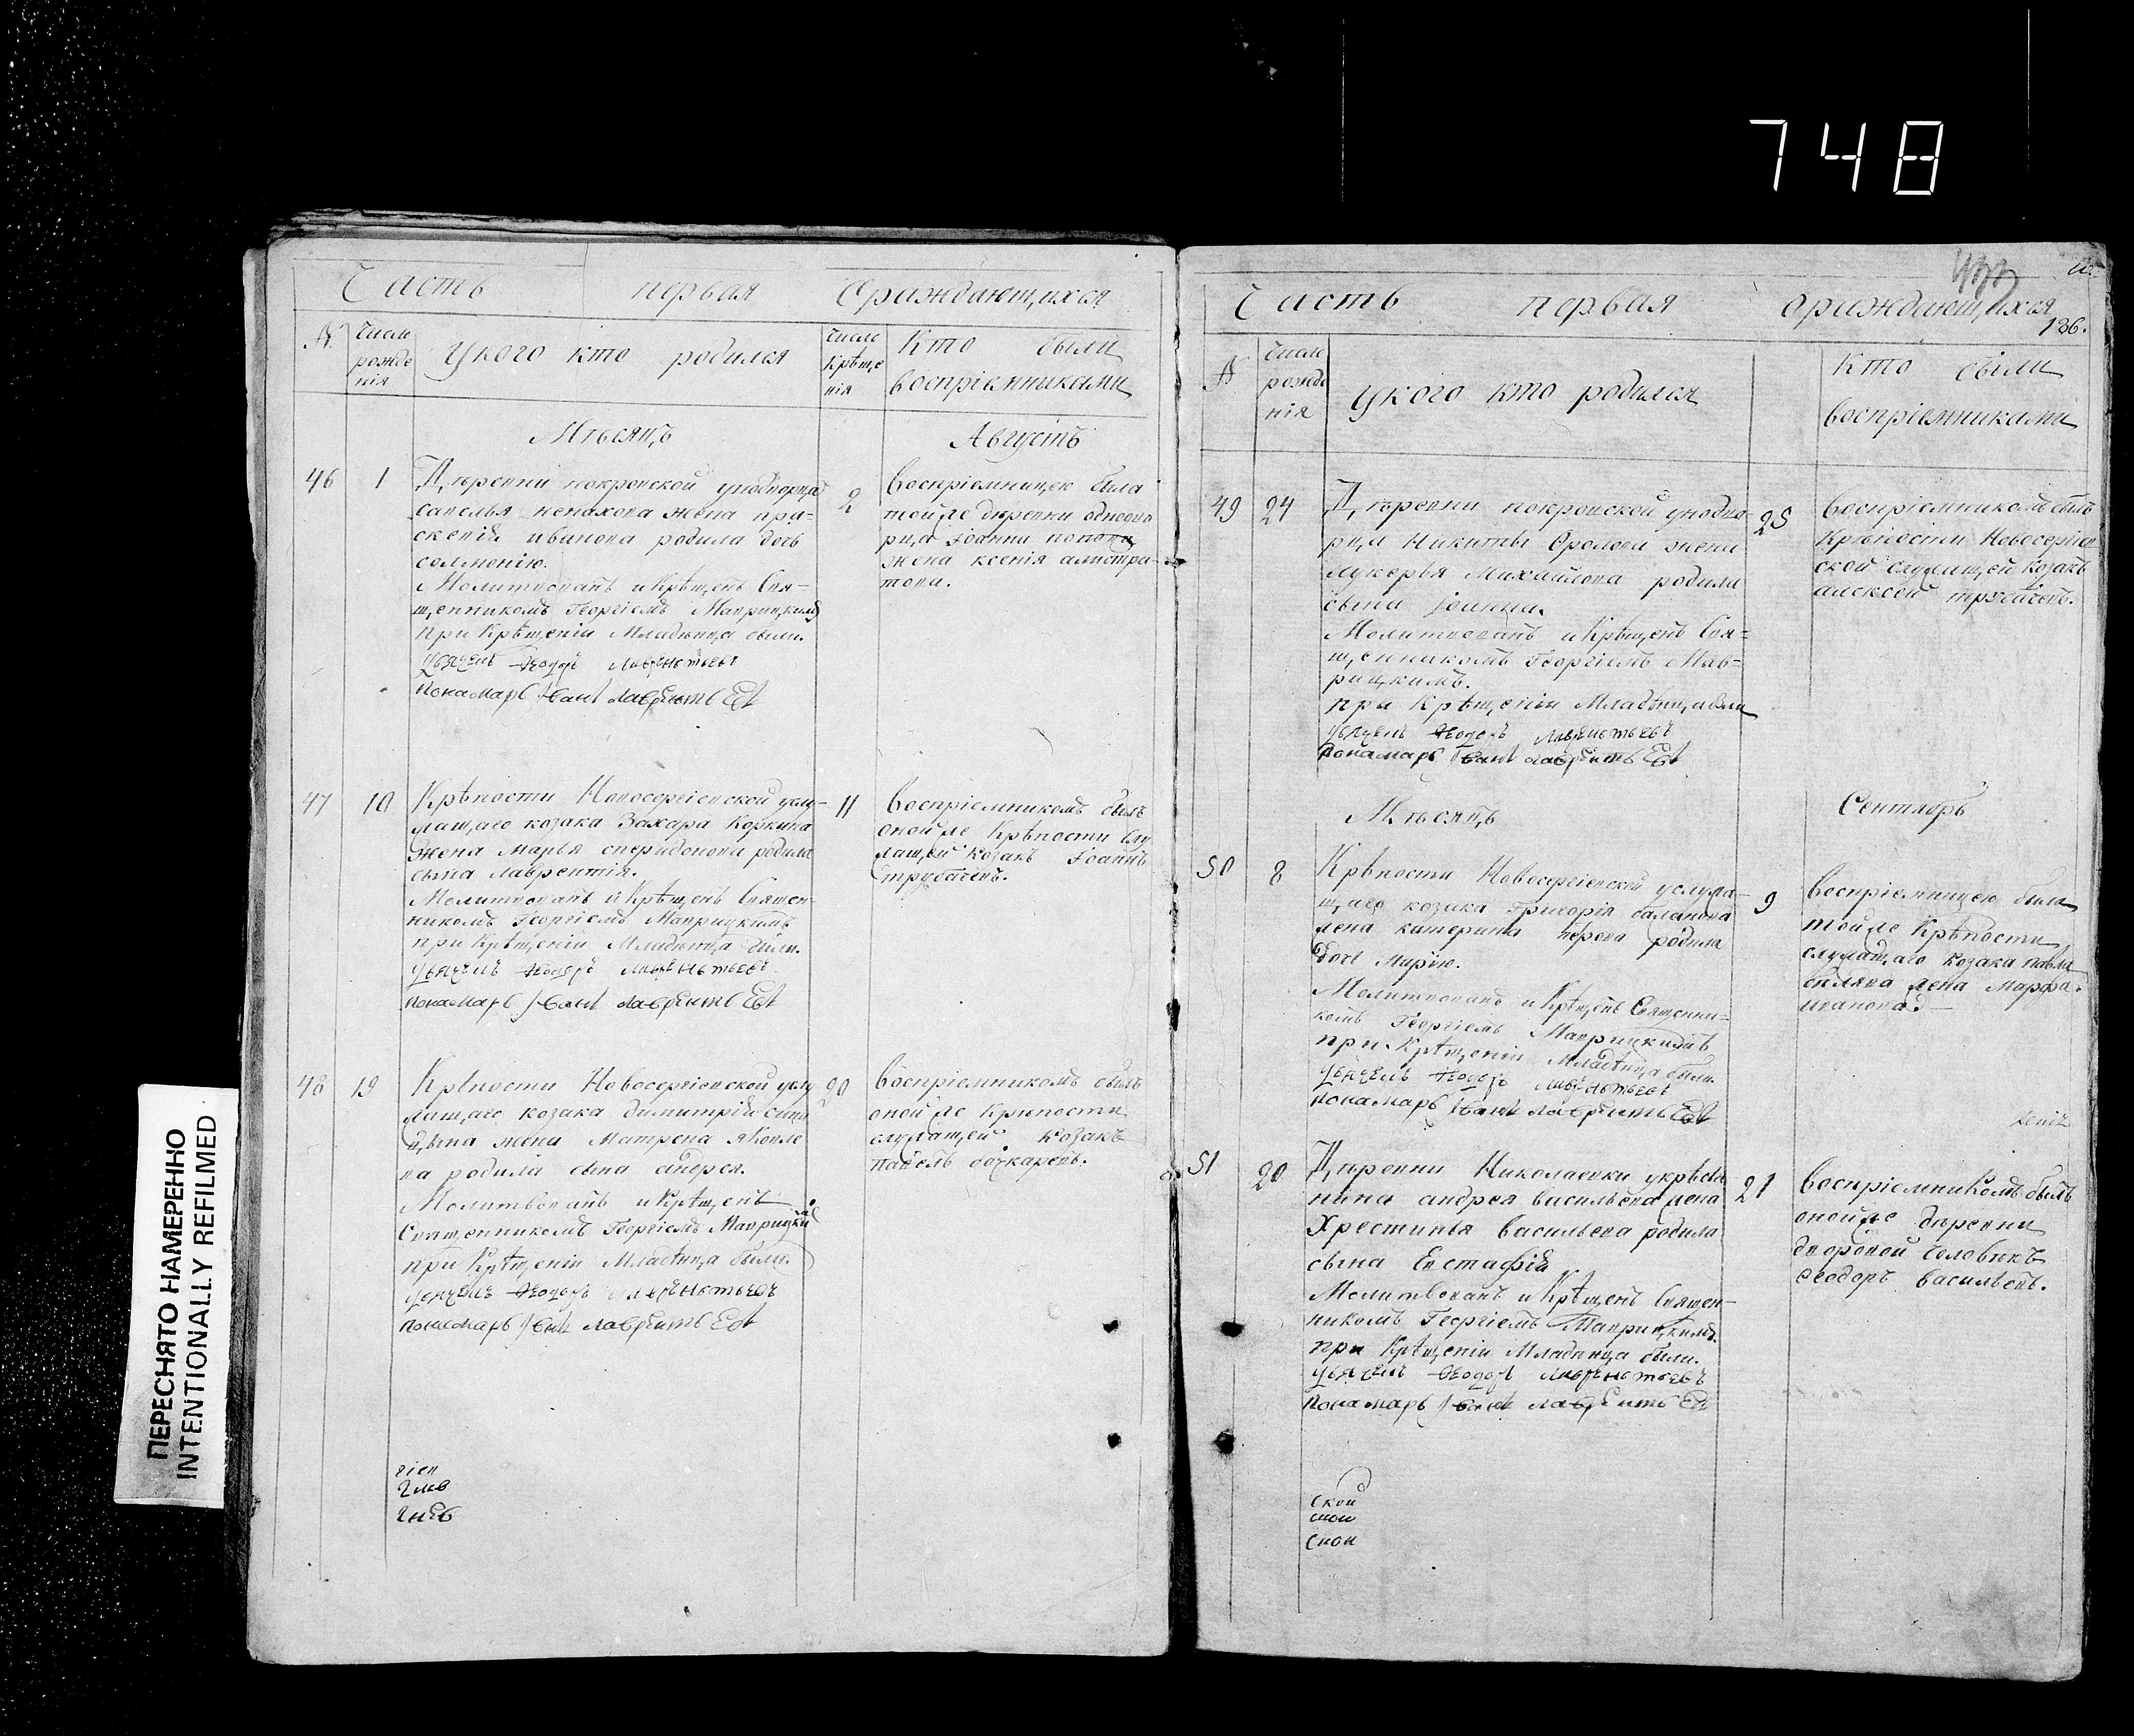 748
Часть первая Ораждающихся
№
Число рожде нія
У кого кто родился
Число Крѣще нія
Кто были
воспріемниками
Мѣсяцъ
Августъ
46
1
Дѣревни покровской уоднодворца
савелья жена пра-
скевія иванова родила дочь
соломонію.
Молитвованъ и Крѣщенъ Свя-
щенникомъ Георгіемъ Маврицкимъ
При Крѣщеніи Младѣнца были.
Феодоръ Лаврентьевъ
Пономарь Іванъ Лаврентьевъ
2
Воспріемницею была
той же дѣревни однодво
рца Іоанна попова
жена ксенія
47
10
Крѣпости Новосергіевской услу-
жащаго козака Захара Коркина
жена Марья спиридонова родила
сына лаврентія.
Молитвованъ и Крѣщенъ Священ-
никомъ Георгіемъ Маврицкимъ
при Крѣщеніи Младѣнца были.
Феодоръ Лаврентьевъ
пономарь Іванъ Лаврентьевъ
11
Воспріемникомъ былъ
оной же Крѣпости слу
жащей козакъ Іоаннъ
трубачевъ.
48
19
Крѣпости Новосергіевской услу
жащаго козака димитрія
жена Матрена яковле
ва родила сына андрея.
Молитвованъ и Крѣщенъ
Священникомъ Георгіемъ Маврицки
при Крѣщеніи Младѣнца были.
Феодоръ Лаврентьевъ
пономарь Іванъ Лаврентьевъ
20
Воспріемникомъ былъ
оной же Крѣпости
служащей козакъ
павелъ бочкаревъ.
гіев
ПЕРЕСНЯТО НАМЕРЕННО
INTENTIONALLY REFILMED
Часть первая ораждающихся
136.
№
Число рожде нія
У кого кто родился
Кто были
воспріемниками
49
24
Дѣревни покровской уоднодво-
рца Никиты Фролова жена
лукерья Михайлова родила
сына Іоанна.
Молитвованъ и Крѣщенъ Свя-
щенникомъ Георгіемъ Мав-
рицкимъ.
при Крѣщеніи Младѣнца были
Феодоръ Лаврентьевъ
пономарь Іванъ Лаврентьевъ
25
Воспріемникомъ былъ
Крѣпости Новосергіев
ской служащей козакъ
алексей трубачевъ.
Мѣсяцъ
Сентябрь
50
8
Крѣпости Новосергіевской услужа-
щаго козака Григорія баланова
жена катерина родила
дочь Марію.
Молитвованъ и Крѣщенъ Священни-
комъ Георгіемъ Маврицкимъ
при Крѣщеніи Младѣнца были.
Феодоръ Лаврентьевъ
пономарь Іванъ Лаврентьевъ
9
Воспріемницею была
той же Крѣпости
служащаго козака павла
жена Марфа
иванова.
51
20
Дѣревни Николаевки укрѣстья
нина андрея васильева жена
Хрестинья васильева родила
сына Евстафія
Молитвованъ и Крѣщенъ Священ-
никомъ Георгіемъ Маврицкимъ.
при Крѣщеніи Младѣнца были.
Феодоръ Лаврентьевъ
пономарь Іванъ Лаврентьевъ
21
Воспріемникомъ былъ
оной же дѣревни
дворовой человѣкъ
Феодоръ васильевъ.
ской